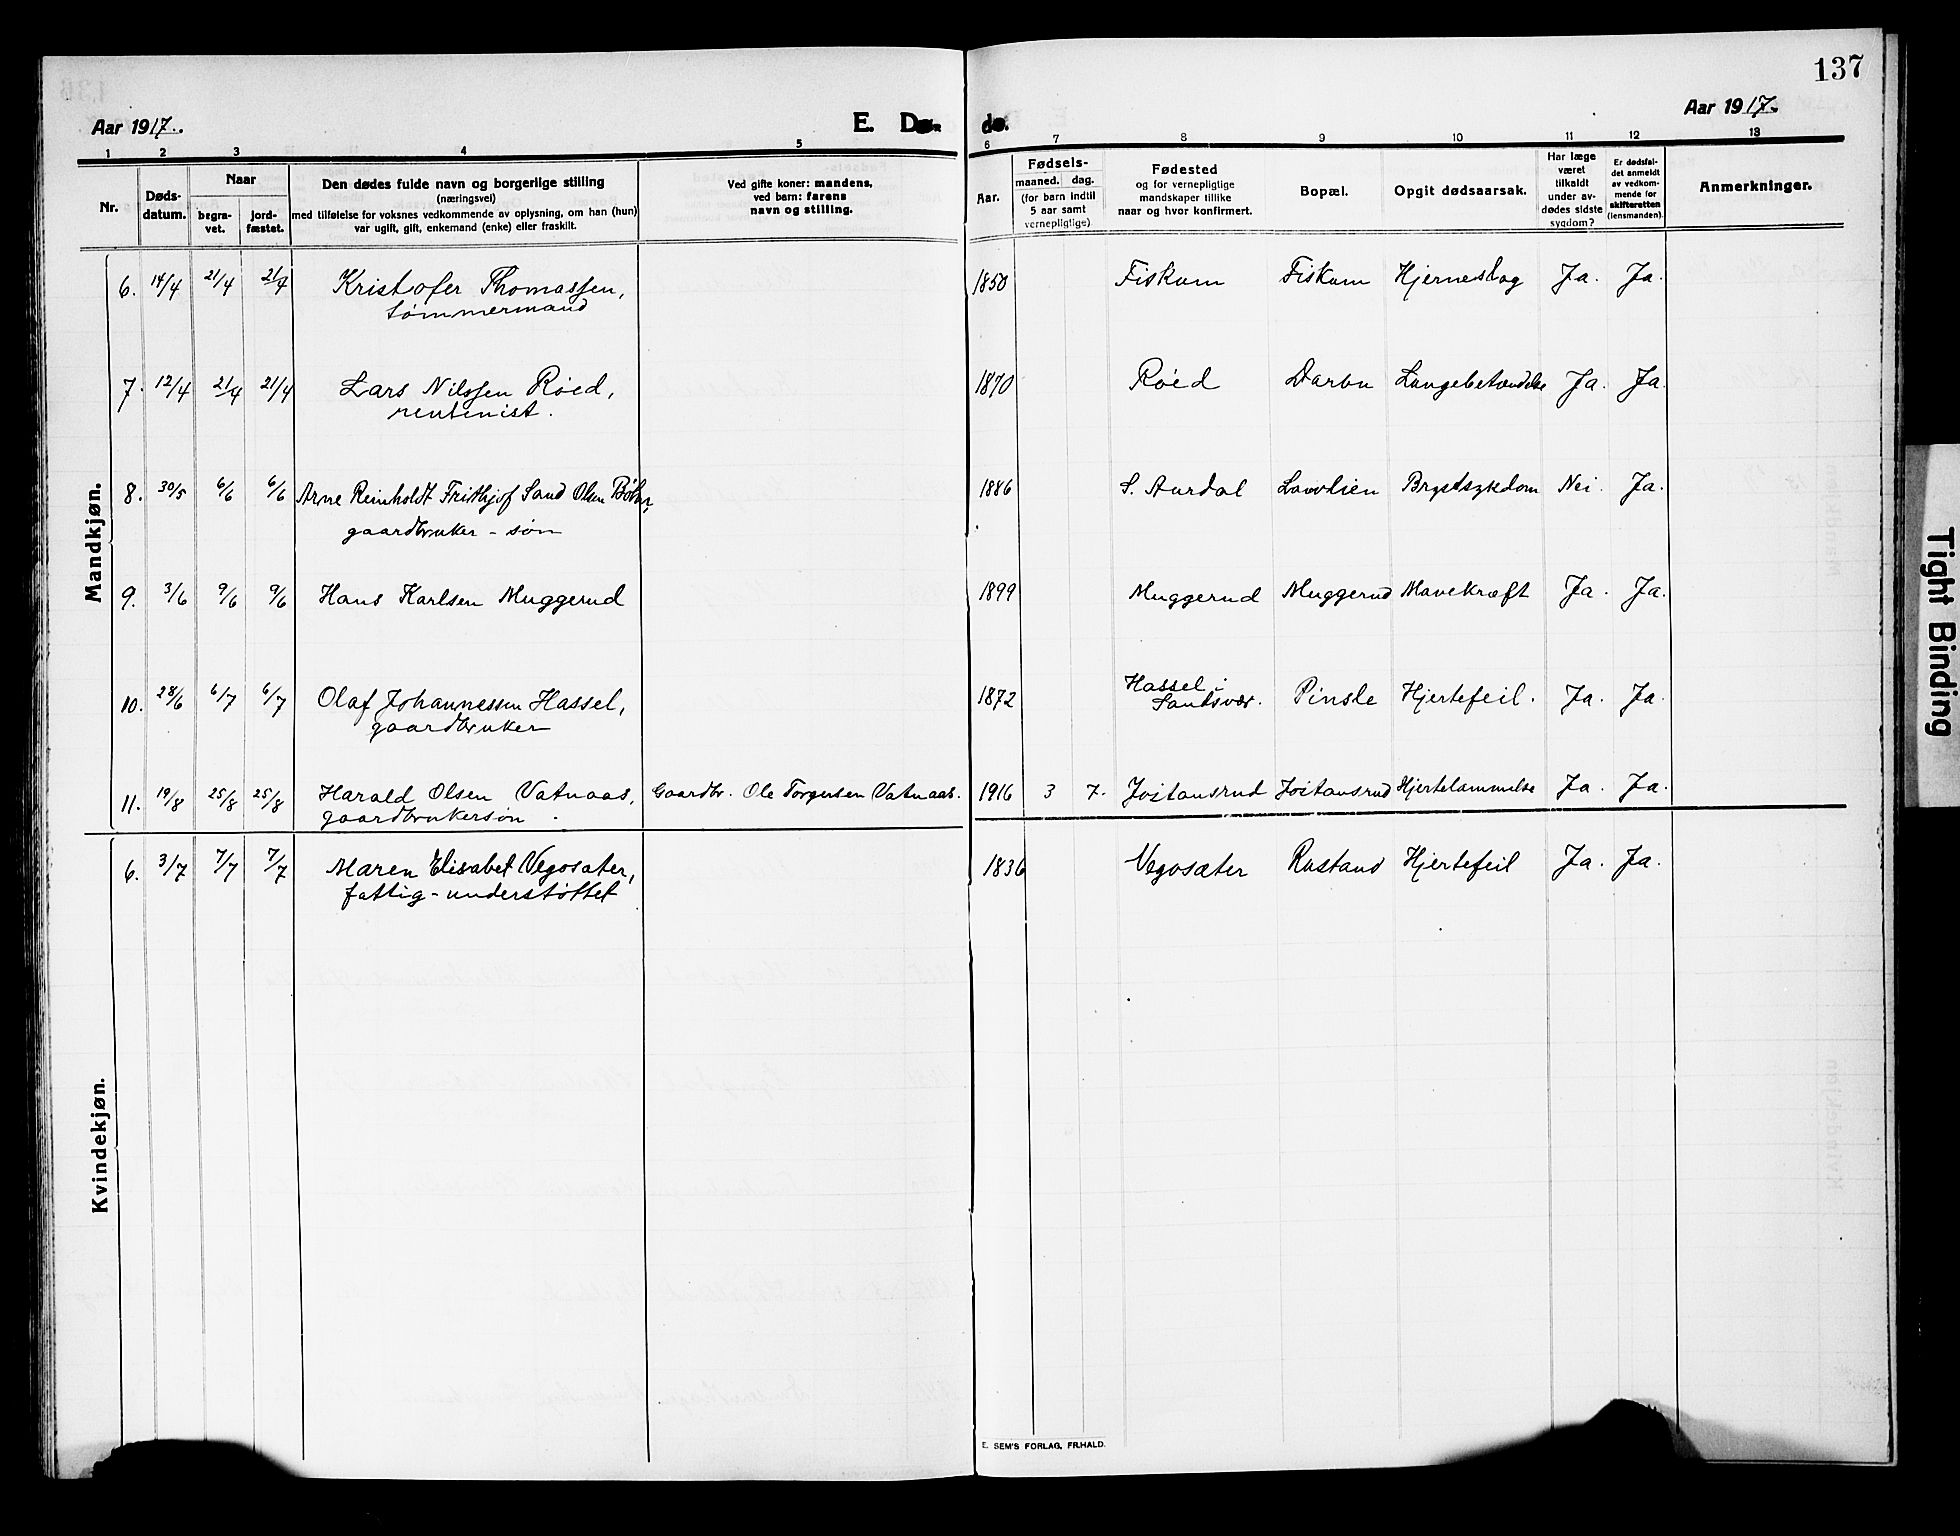 137
Aar 1917.
E. Dø-
de.
Aar 1917.
1 2 3 4 5 6 7 8 9 10 11 12 13
Nr.
Døds-
datum.
Naar
begra-
vet.
jord-
fæstet.
Den dødes fulde navn og borgerlige stilling
(næringsvei)
med tilføielse for voksnes vedkommende av oplysning, om han (hun)
var ugift, gift, enkemand (enke) eller fraskilt.
Ved gifte koner: mandens,
ved barn: farens
navn og stilling.
Aar.
Fødsels-
maaned. dag.
(for barn indtil
5 aar samt
vernepligtige)
Fødested
og for vernepligtige
mandskaper tillike
naar og hvor konfirmert.
Bopæl.
Opgit dødsaarsak.
Har læge
været
tilkaldt
under av-
dødes sidste
sygdom?
Er dødsfal-
det anmeldt
av vedkom-
mende for
skifteretten
(lensmanden).
Anmerkninger.
Mandkjøn.
6. 14/4 21/4 21/4 Kristofer Thomassen, 1850 Fiskum Fiskum Hjerneslag Ja. Ja.
tømmermand
7. 12/4 21/4 21/4 Lars Nilssen Røed, 1870 Røed Darbu Lungebetændelse Ja. Ja.
rentenist.
8. 30/5 6/6 6/6 Arne Reinholdt Frithjof Sand Olsen 1886 S. Aurdal Brystsykdom Nei. Ja.
gaardbruker - søn
9. 3/6 9/6 9/6 Hans Karlsen Muggerud 1899 Muggerud Muggerud Mavekræft Ja. Ja.
10. 28/6 6/7 6/7 Olaf Johannessen Hassel, 1872 Hassel i Pinsle Hjertefeil. Ja. Ja.
gaardbruker Sandsvær.
11. 19/8 25/8 25/8 Harald Olsen Vatnaas, Gaardbr. Ole Torgersen Vatnaas. 1916 3 7. Jøstansrud Jøstansrud Hjertelammelse Ja. Ja.
gaardbrukersøn
Kvindekjøn.
6. 3/7 7/7 7/7 Maren Elisabet Vegosæter, 1836 Vegosæter Rustand Hjertefeil Ja. Ja.
fattig-understøttet
E. SEM'S FORLAG, FR.HALD.
Tight Binding